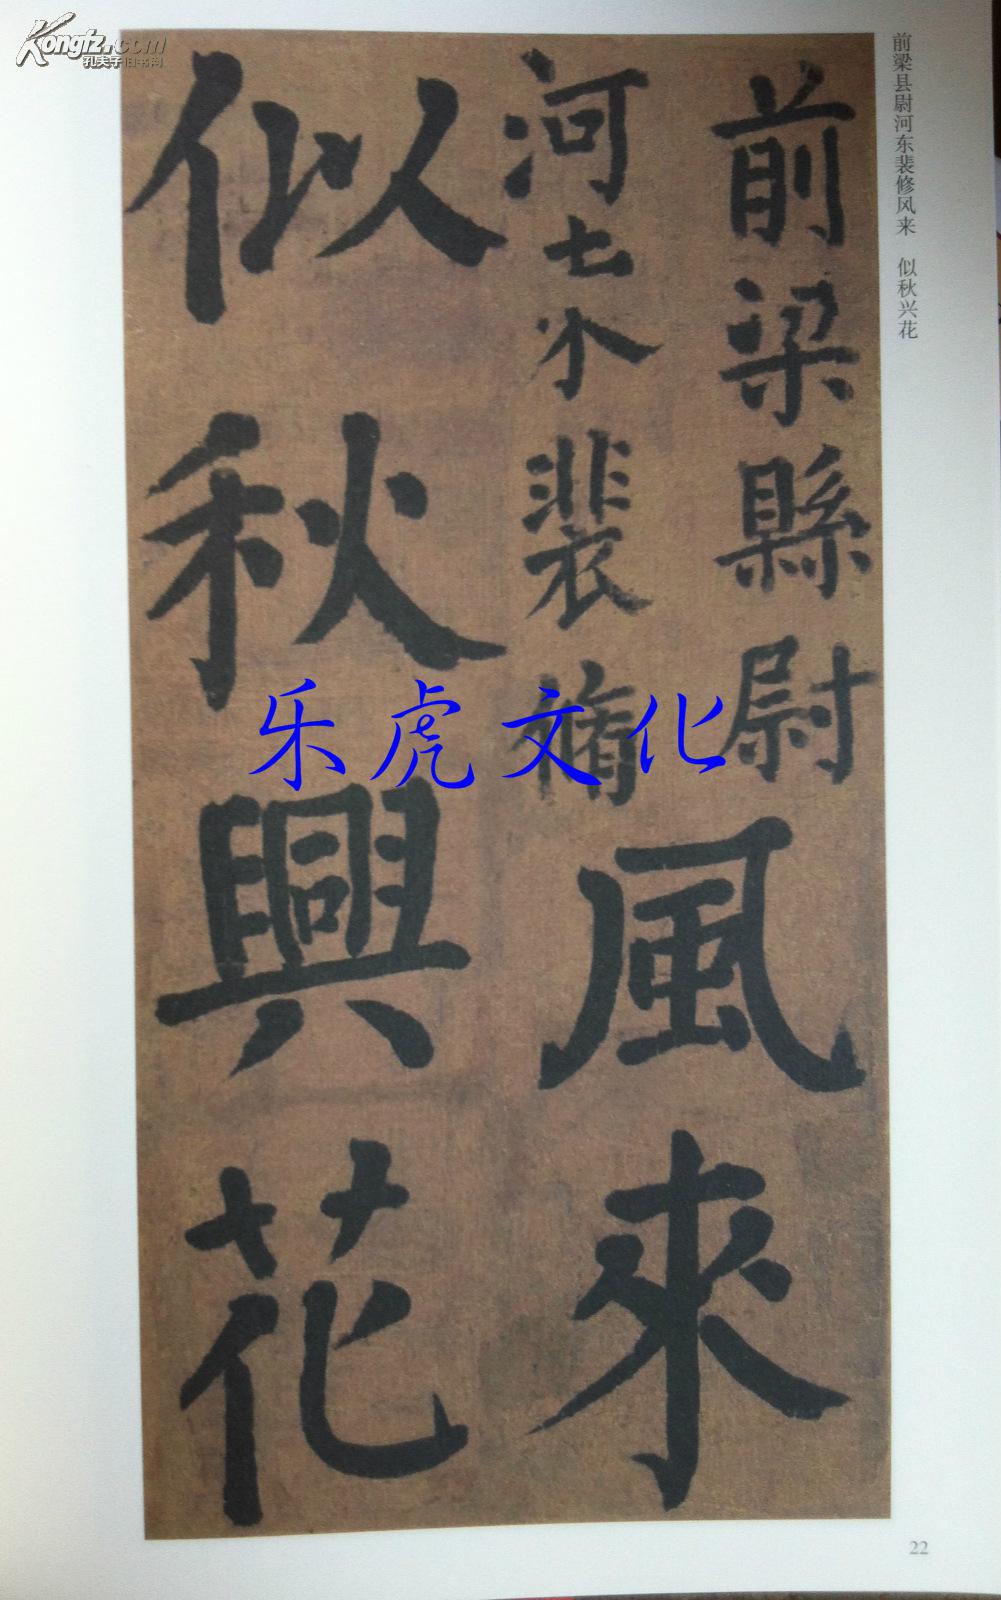 前梁县尉河东裴修风来 似秋兴花
前梁縣尉
河东裴脩
風來
似秋興花
Kongfz.com
孔夫子旧书网
乐虎文化
22